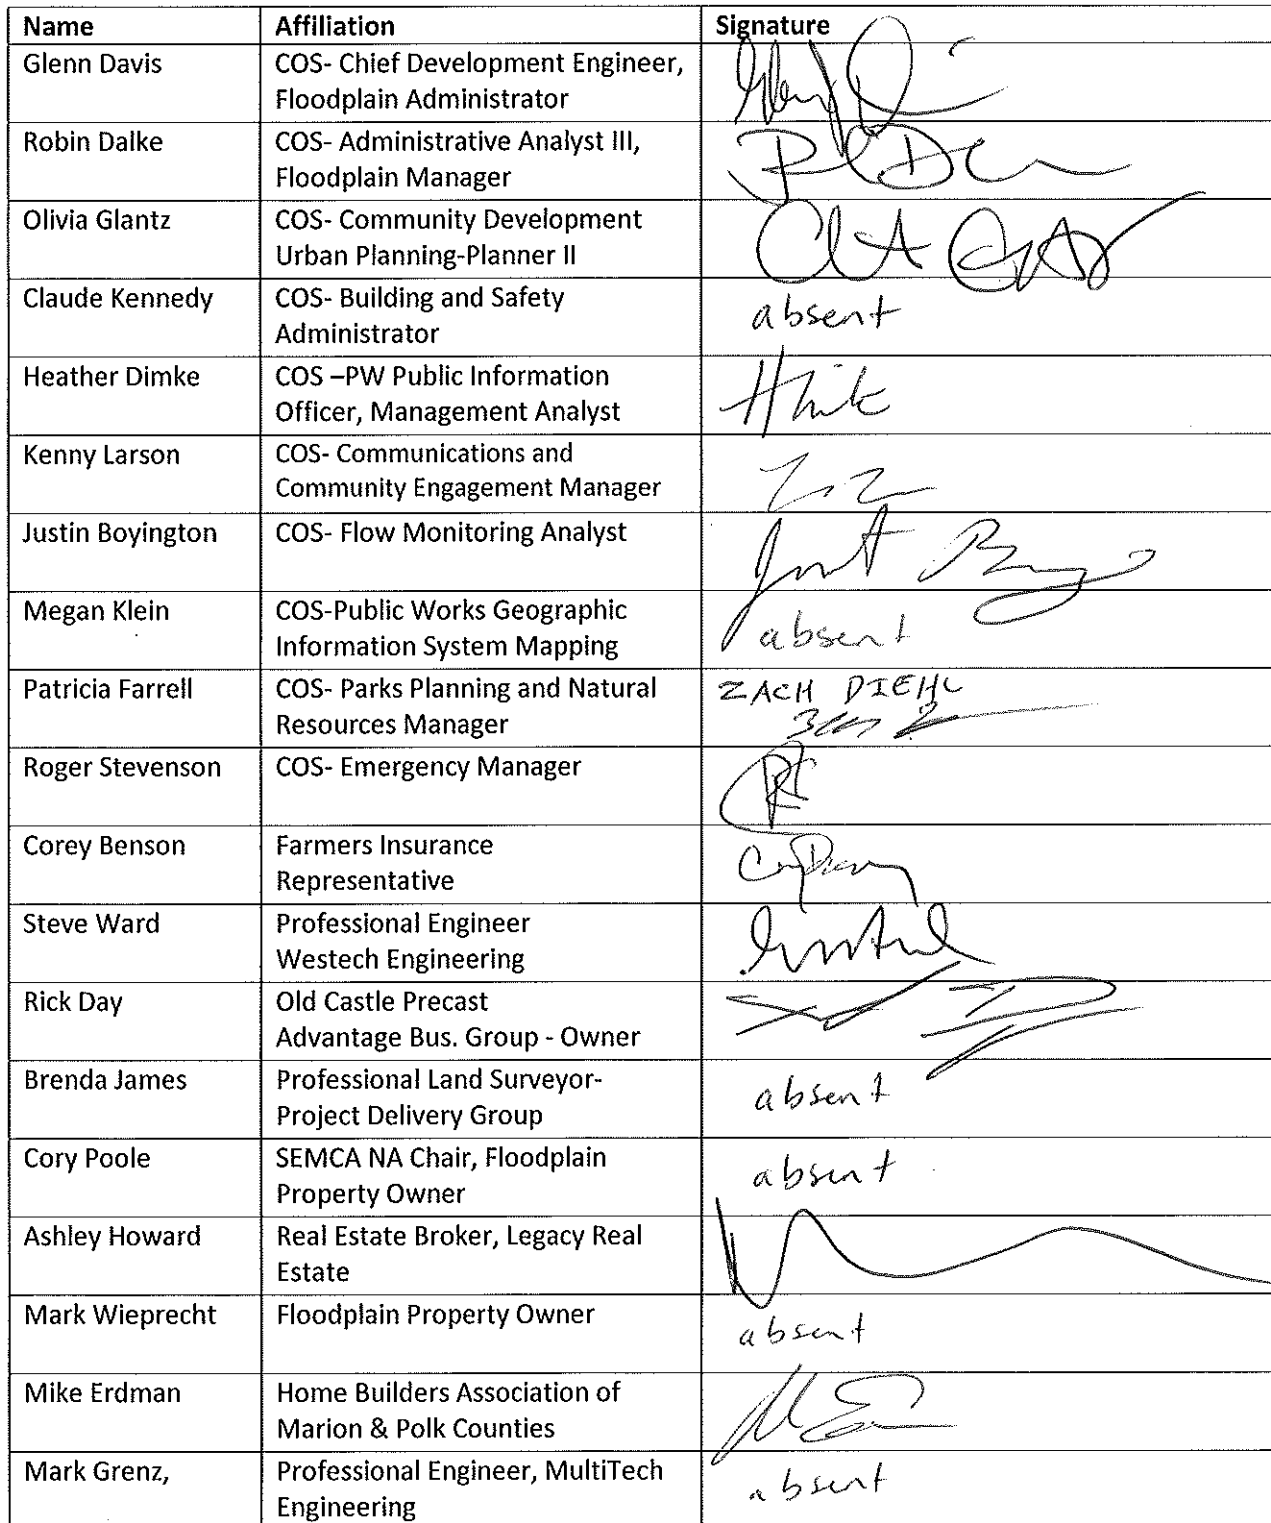 Name Affiliation Signature
Glenn Davis COS- Chief Development Engineer,
Floodplain Administrator
Robin Dalke COS- Administrative Analyst III,
Floodplain Manager
Olivia Glantz COS- Community Development
Urban Planning-Planner II
Claude Kennedy COS- Building and Safety absent
Administrator
Heather Dimke COS –PW Public Information
Officer, Management Analyst
Kenny Larson COS- Communications and
Community Engagement Manager
Justin Boyington COS- Flow Monitoring Analyst
Megan Klein COS-Public Works Geographic absent
Information System Mapping
Patricia Farrell COS- Parks Planning and Natural ZACH DIEHL
Resources Manager
Roger Stevenson COS- Emergency Manager
Corey Benson Farmers Insurance
Representative
Steve Ward Professional Engineer
Westech Engineering
Rick Day Old Castle Precast
Advantage Bus. Group - Owner
Brenda James Professional Land Surveyor- absent
Project Delivery Group
Cory Poole SEMCA NA Chair, Floodplain absent
Property Owner
Ashley Howard Real Estate Broker, Legacy Real
Estate
Mark Wieprecht Floodplain Property Owner absent
Mike Erdman Home Builders Association of
Marion & Polk Counties
Mark Grenz, Professional Engineer, MultiTech absent
Engineering